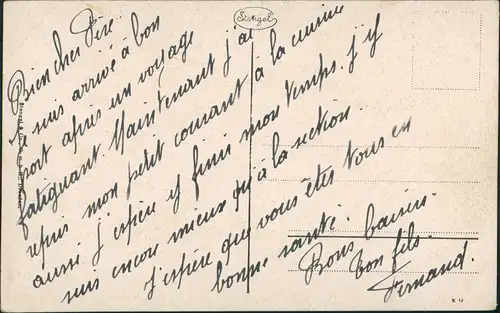 Stengel
Bien cher Père.
Je suis arrivé à bon
port après un voyage
fatiguant. Maintenant j'ai
repris mon petit courant à la cuisine
aussi j'espère y finir mon temps. J'y
suis encore mieux qu'à la section.
J'espère que vous êtes tous en
bonne santé.
Bons baisers.
Ton fils.
Fernand.